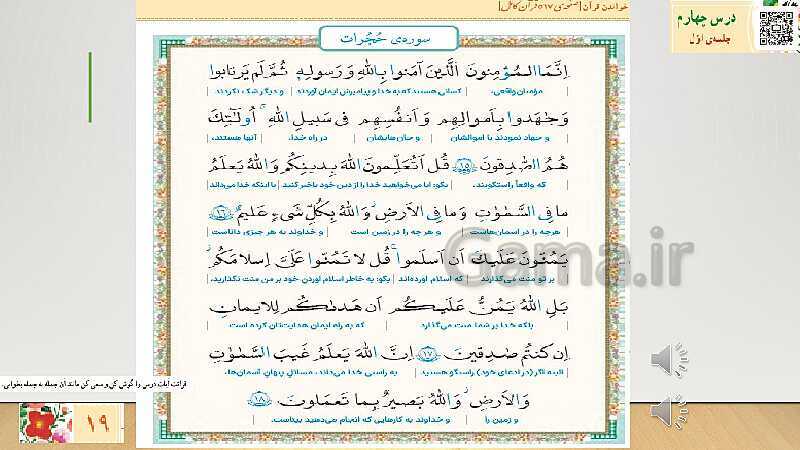 درس چهارم
جلسه‌ی اوّل
خواندن قرآن [صفحه‌ی ۵۱۷ قرآن کامل]
سوره‌ی حُجُرات
اِنَّمَا المُؤمِنونَ الَّذینَ آمَنوا بِاللهِ وَ رَسولِهٖ ثُمَّ لَم یَرتابوا
مؤمنان واقعی، کسانی هستند که به خدا و پیامبرش ایمان آوردند و دیگر شک نکردند
وَ جٰهَدوا بِاَموالِهِم وَ اَنفُسِهِم فی سَبیلِ اللهِ ۚ اُولٰئِکَ
و جهاد نمودند با اموالشان و جان‌هایشان در راه خدا. آنها هستند،
هُمُ الصّٰدِقونَ ۱۵ قُل اَتُعَلِّمونَ اللهَ بِدینِکُم وَ اللهُ یَعلَمُ
که واقعاً راستگویند. بگو: آیا می‌خواهید خدا را از دین خود باخبر کنید با اینکه خدا می‌داند
ما فِی السَّمٰوٰتِ وَ ما فِی الاَرضِ ۚ وَ اللهُ بِکُلِّ شَیءٍ عَلیمٌ ۱۶
هرچه را در آسمان‌هاست و هر چه را در زمین است و خداوند به هر چیزی داناست
یَمُنّونَ عَلَیکَ اَن اَسلَموا ۖ قُل لا تَمُنّوا عَلَیَّ اِسلامَکُم ۖ
بر تو منت می‌گذارند که اسلام آورده‌اند بگو: به خاطر اسلام آوردن خود بر من منت نگذارید.
بَلِ اللهُ یَمُنُّ عَلَیکُم اَن هَدٰىکُم لِلایمانِ
بلکه خدا بر شما منت می‌گذارد که به راه ایمان هدایتتان کرده است
اِن کُنتُم صٰدِقینَ ۱۷ اِنَّ اللهَ یَعلَمُ غَیبَ السَّمٰوٰتِ
البته اگر (در ادعای خود) راستگو هستید به راستی خدا می‌داند، مسائل پنهان آسمان‌ها،
وَ الاَرضِ ۚ وَ اللهُ بَصیرٌ بِما تَعمَلونَ ۱۸
و زمین را و خداوند به کارهایی که انجام می‌دهید بیناست.
قرائت آیات درس را گوش کن و سعی کن مانند آن جمله به جمله بخوانی.
۱۹
Gama.ir